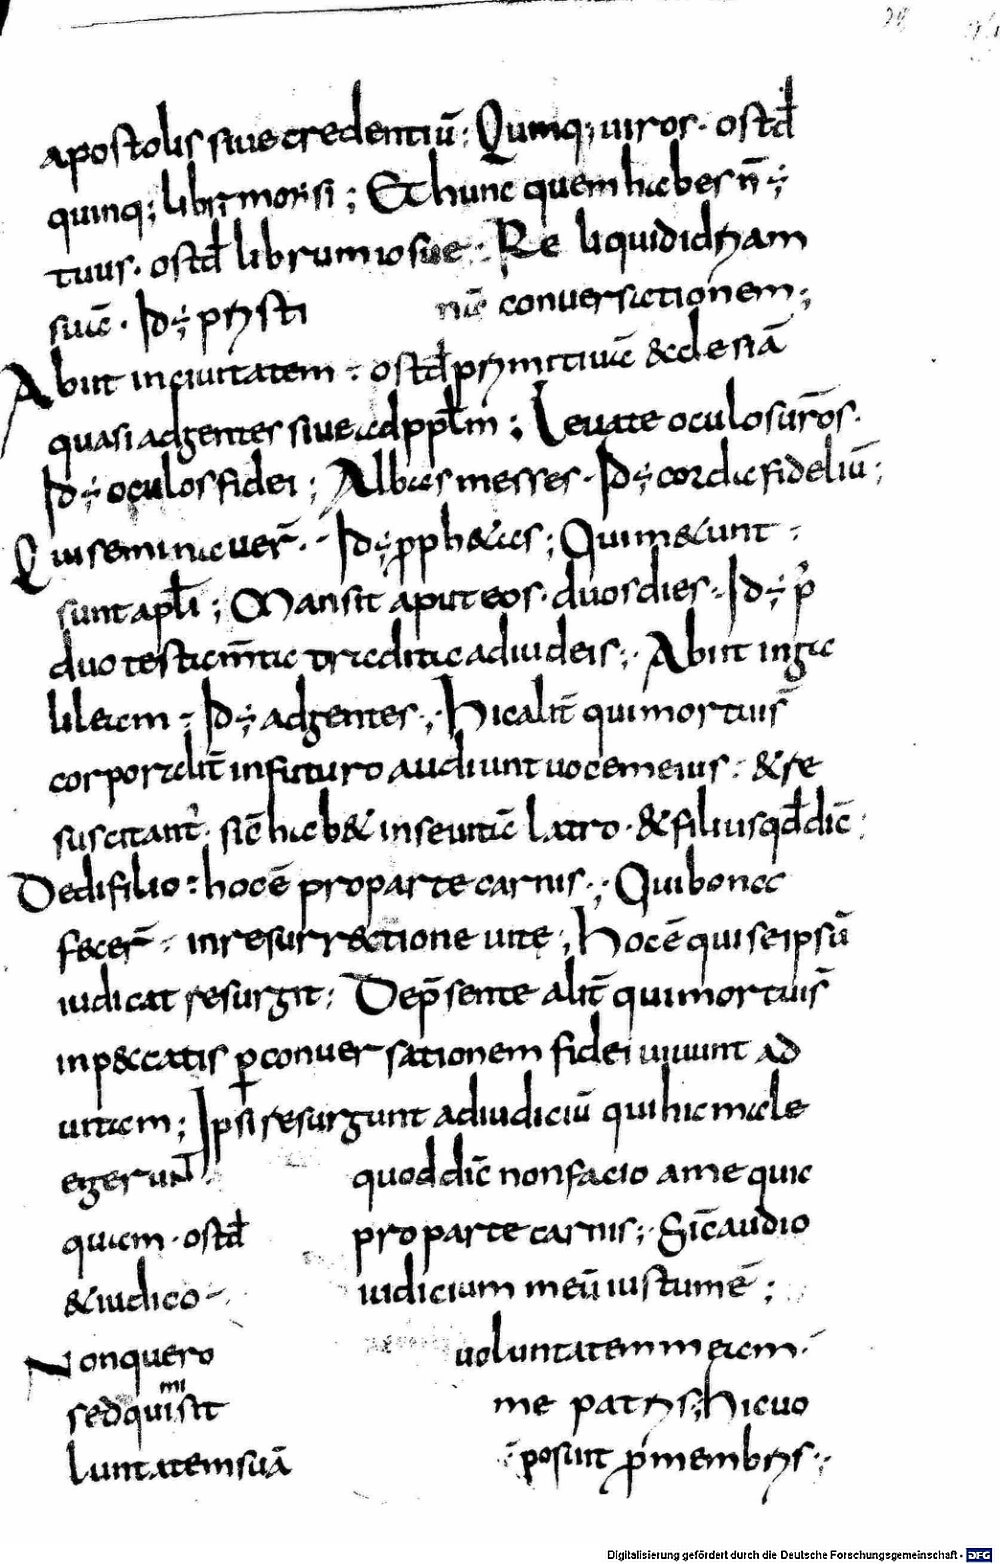 apostolis siue credentiū; Quinq; uiros· ostd̄
quinq; libri morsi; Et hunc quem habes n̄ ÷;
tuus· ostd̄ librum iosue· Reliquid idriam
suā· Id÷ pristi nā conuersationem;
Abiit in ciuitatem· ostd̄ primitiuā &clesiā
quasi ad gentes siue ad ppl̄m; Leuate oculos ur̄os·
Id÷ oculos fidei; Albas messes· Id÷ corda fideliū;
Qui seminauer̄· Id÷ pph&as; Qui m&unt
sunt apl̄i; Mansit aput eos· duos dies· Id÷ p
duo testam̄ta tradita ad iudeis; Abiit in ga
lileam· Id÷ ad gentes· Hic alit̄ qui mortuis̄
corporalit̄ in futuro audiunt uocem eius· & re
suscitant· sic̄ hab& in seuitā latro· & filius qd̄ dic̄
Dedi filio: hoc ē pro parte carnis; Qui bona
fecer̄· in resurr&tione uite; Hoc ē qui se ipsū
iudicat resurgit; Dep̄sente alit̄ qui mortuis̄
in p&catis p conuersationem fidei uiuunt ad
uitam; Ipsi resurgunt ad iudiciū qui hic male
egerunt quod dic̄ non facio a me quic
quam· ostd̄ pro parte carnis; Sic̄ audio
& iudico iudicium meū iustum ē;
Non quero uoluntatem meam·
sed qui misit me patris; hic uo
luntatem suā posuit p membris·